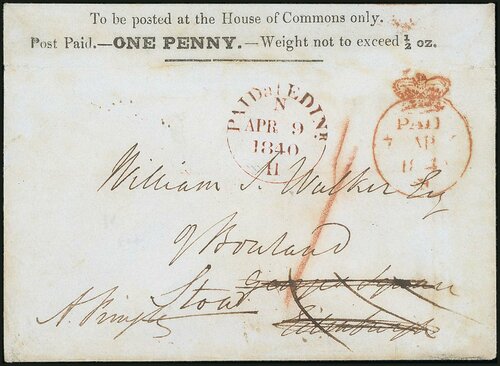 To be posted at the House of Commons only.
Post Paid.—ONE PENNY.—Weight not to exceed ½ oz.
PAID at EDINR
N
APR 9
1840
11
PAID
7 AP
184
William S. Walker Esq
of Bowland
George Square
Stow
Edinburgh